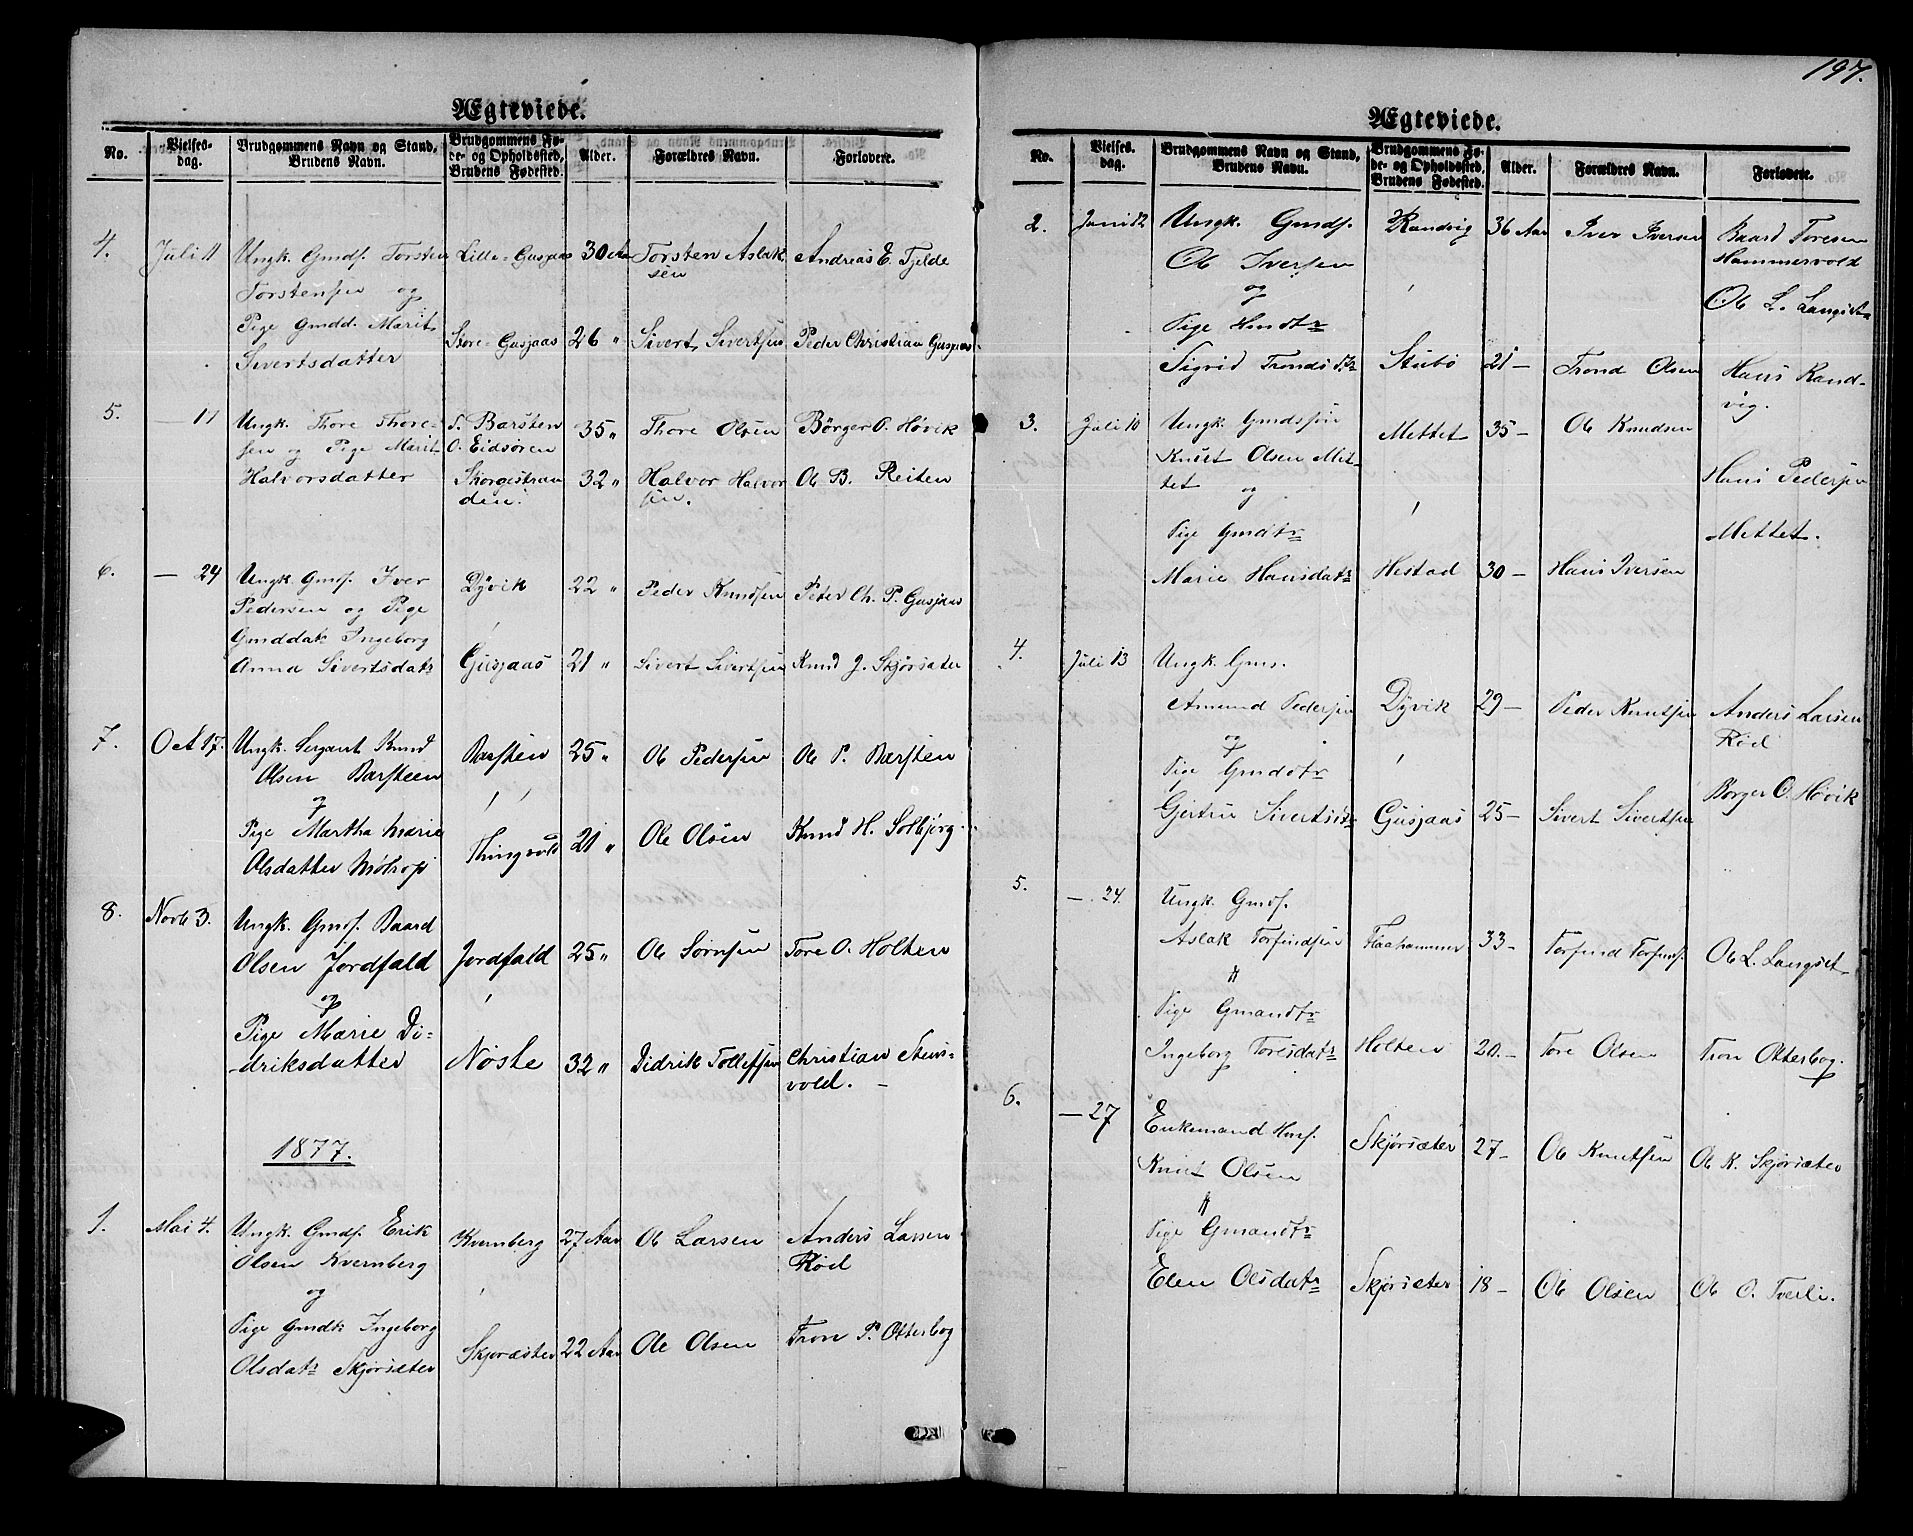 197.
Ægteviede.
No.
Vielses-
dag.
Brudgommens Navn og Stand,
Brudens Navn.
Brudgommens Fø-
de- og Opholdssted,
Brudens Fødested.
Alder.
Forældres Navn.
Forlovere.
4.
Juli 11
Ungk. Gmdf. Torsten
Torstensen og
Pige Gmdd. Marit
Sivertsdatter
Lille-Gusjaas
Store-Gusjaas
30 Aar
26 "
Torsten Aslak
sen
Sivert Sivertsen
Andreas E. Fjelde
Peder Christian Gusjaas.
5.
— 11
Ungk. Thore Thore-
sen og Pige Marit
Halvorsdatter
F. Barsten
O. Eidsøren
Skorgestran
den.
35 "
32 "
Thore Olsen
Halvor Halvor
sen.
Børger O. Høvik
Ole B. Reiten
6.
— 24
Ungk. Gmdf. Iver
Pedersen og Pige
Gmddatr Ingeborg
Anna Sivertsdatr
Dyvik
Gusjaas
22 "
21 "
Peder Knudsen
Sivert Sivertsen
Peter Ch. P. Gusjaas
Knud J. Skjørsæter
7.
Oct 17.
Ungk. Sergant Knud
Olsen Barsteen
og
Pige Martha Marie
Olsdatter
Barsten
Thingvold
25 "
21 "
Ole Pedersen
Ole Olsen
Ole P. Barsten
Knud H. Solbjørg.
8.
Novb 3.
Ungk. Gmdf. Baard
Olsen Jordfald
og
Pige Marie Di-
driksdatter
Jordfald
Nøste
25 "
32 "
Ole Sørnsen
Didrik Tollefsen
Tore O. Holten
Christian Stens-
vold. —
1877.
1.
Mai 4.
Ungk. Gmdf. Erik
Olsen Kvernberg
og
Pige Gmdtr Ingeborg
Olsdatr Skjørsæter
Kvernberg
Skjøræster
27 Aar
22 Aar
Ole Larsen
Ole Olsen
Anders Larsen
Rød
Tron P. Otterbog
Ægteviede.
No.
Vielses-
dag.
Brudgommens Navn og Stand,
Brudens Navn.
Brudgommens Fø-
de- og Opholdssted,
Brudens Fødested.
Alder.
Forældres Navn.
Forlovere.
2.
Juni 12
Ungk. Gmdf.
Ole Iversen
og
Pige Hmdtr
Sigrid Tronds Dtr
Randvig
Stubø
36 Aar
21 —
Iver Iversen
Trond Olsen
Baard Toresen
Hammervold
Ole L. Langset
Hans Rand-
vig.
3.
Juli 10
Ungk. Gmdssøn
Knut Olsen Met-
tet og
Pige Gmdtr
Marie Hansdatr
Mettet
Hestad
35 —
30 —
Ole Knudsen
Hans Iversen
Hans Pedersen
Mettet.
4.
Juli 13
Ungk. Gms.
Amund Pedersen
og
Pige Gmdtr
Gjertru Sivertsdtr
Dyvik
Gusjaas
29 —
25 —
Peder Knutsen
Sivert Sivertsen
Anders Larsen
Rød
Børger O. Høvik
5.
— 24.
Ungk. Gmdf.
Aslak Torfindsen
Pige Gmandtr
Ingeborg Toresdatr
Flaahammer
Holten
33 —
20. —
Torfind Torfinds.
Tore Olsen
Ole L. Langset
Tron Otterbog.
6.
— 27
Enkemand Hmf.
Knut Olsen
Pige Gmandtr
Elen Olsdatr
Skjørsæter
Skjørsæter
27 —
18 —
Ole Knutsen
Ole Olsen
Ole K. Skjørsæter
Ole O. Tverli.